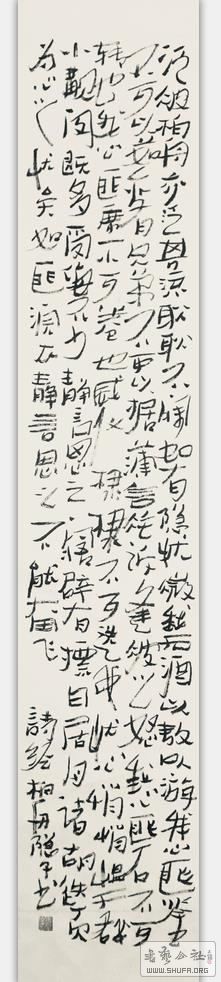 汎彼柏舟亦汎其流耿耿不寐如有隐忧微我无酒以敖以游我心匪鉴
不可以茹亦有兄弟不可以据薄言往诉逢彼之怒我心匪石不可
转也我心匪席不可卷也威仪棣棣不可选也忧心悄悄愠于群
小觏闵既多受侮不少静言思之寤辟有摽日居月诸胡迭而
微心之忧矣如匪浣衣静言思之不能奋飞 詩经柏舟隐子书
书艺公社
WWW.SHUFR.ORG